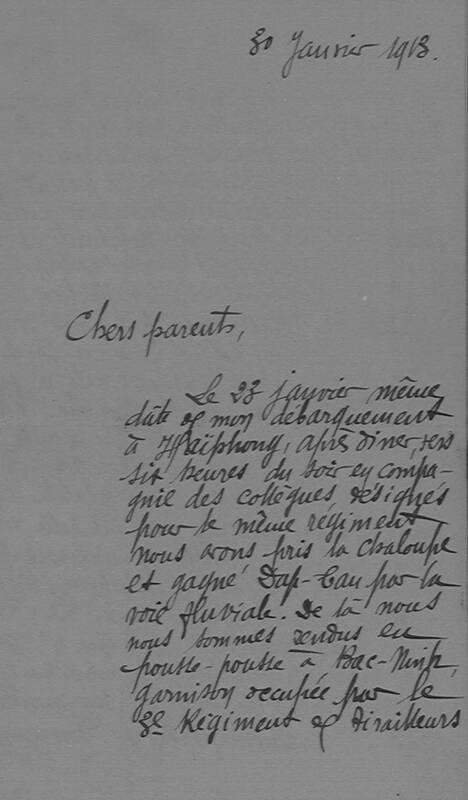 30 Janvier 1913.
Chers parents,
Le 23 janvier même
date de mon débarquement
à Haïphong, après dîner, vers
six heures du soir en compa-
gnie des collègues désignés
pour le même régiment,
nous avons pris la chaloupe
et gagné Dap-Cau par la
voie fluviale. De là nous
nous sommes rendus en
pousse-pousse à Bac-Ninh,
garnison occupée par le
3e Régiment de Tirailleurs